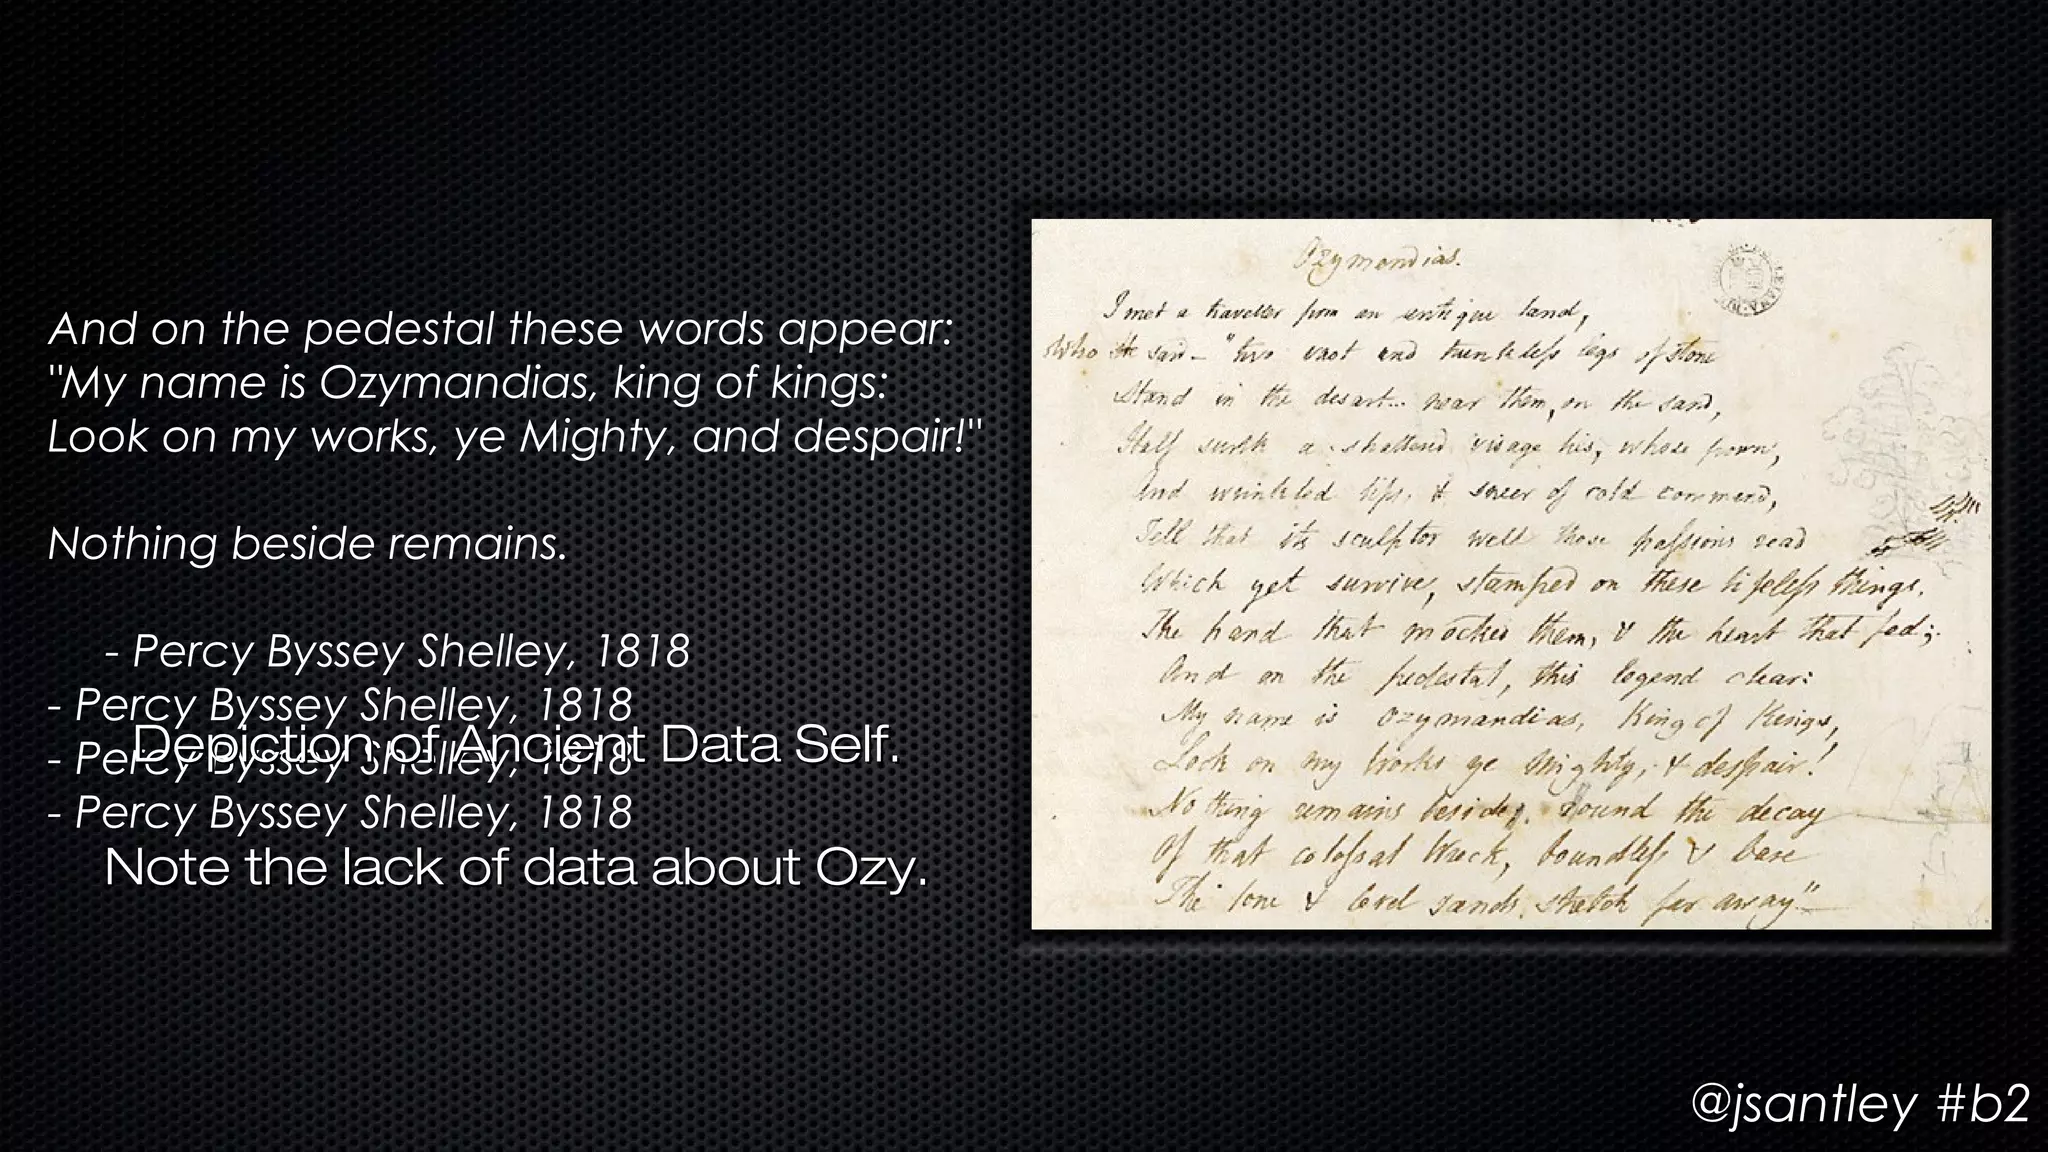 And on the pedestal these words appear:
"My name is Ozymandias, king of kings:
Look on my works, ye Mighty, and despair!"
Nothing beside remains.
- Percy Byssey Shelley, 1818
- Percy Byssey Shelley, 1818
Depiction of Ancient Data Self.
- Percy Byssey Shelley, 1818
- Percy Byssey Shelley, 1818
Note the lack of data about Ozy.
Ozymandias.
I met a traveller from an antique land,
Who He said – "two vast and trunkless legs of stone
Stand in the desart... near them, on the sand,
Half sunk a shattered visage lies, whose frown,
And wrinkled lips, & sneer of cold command,
Tell that its sculptor well those passions read
Which yet survive, stamped on these lifeless things,
The hand that mocked them, & the heart that fed;
And on the pedestal, this legend clear:
My name is Ozymandias, King of Kings,
Look on my works ye Mighty, & despair!
No thing remains beside. round the decay
Of that colossal Wreck, boundless & bare
The lone & level sands stretch far away"—
@jsantley #b2